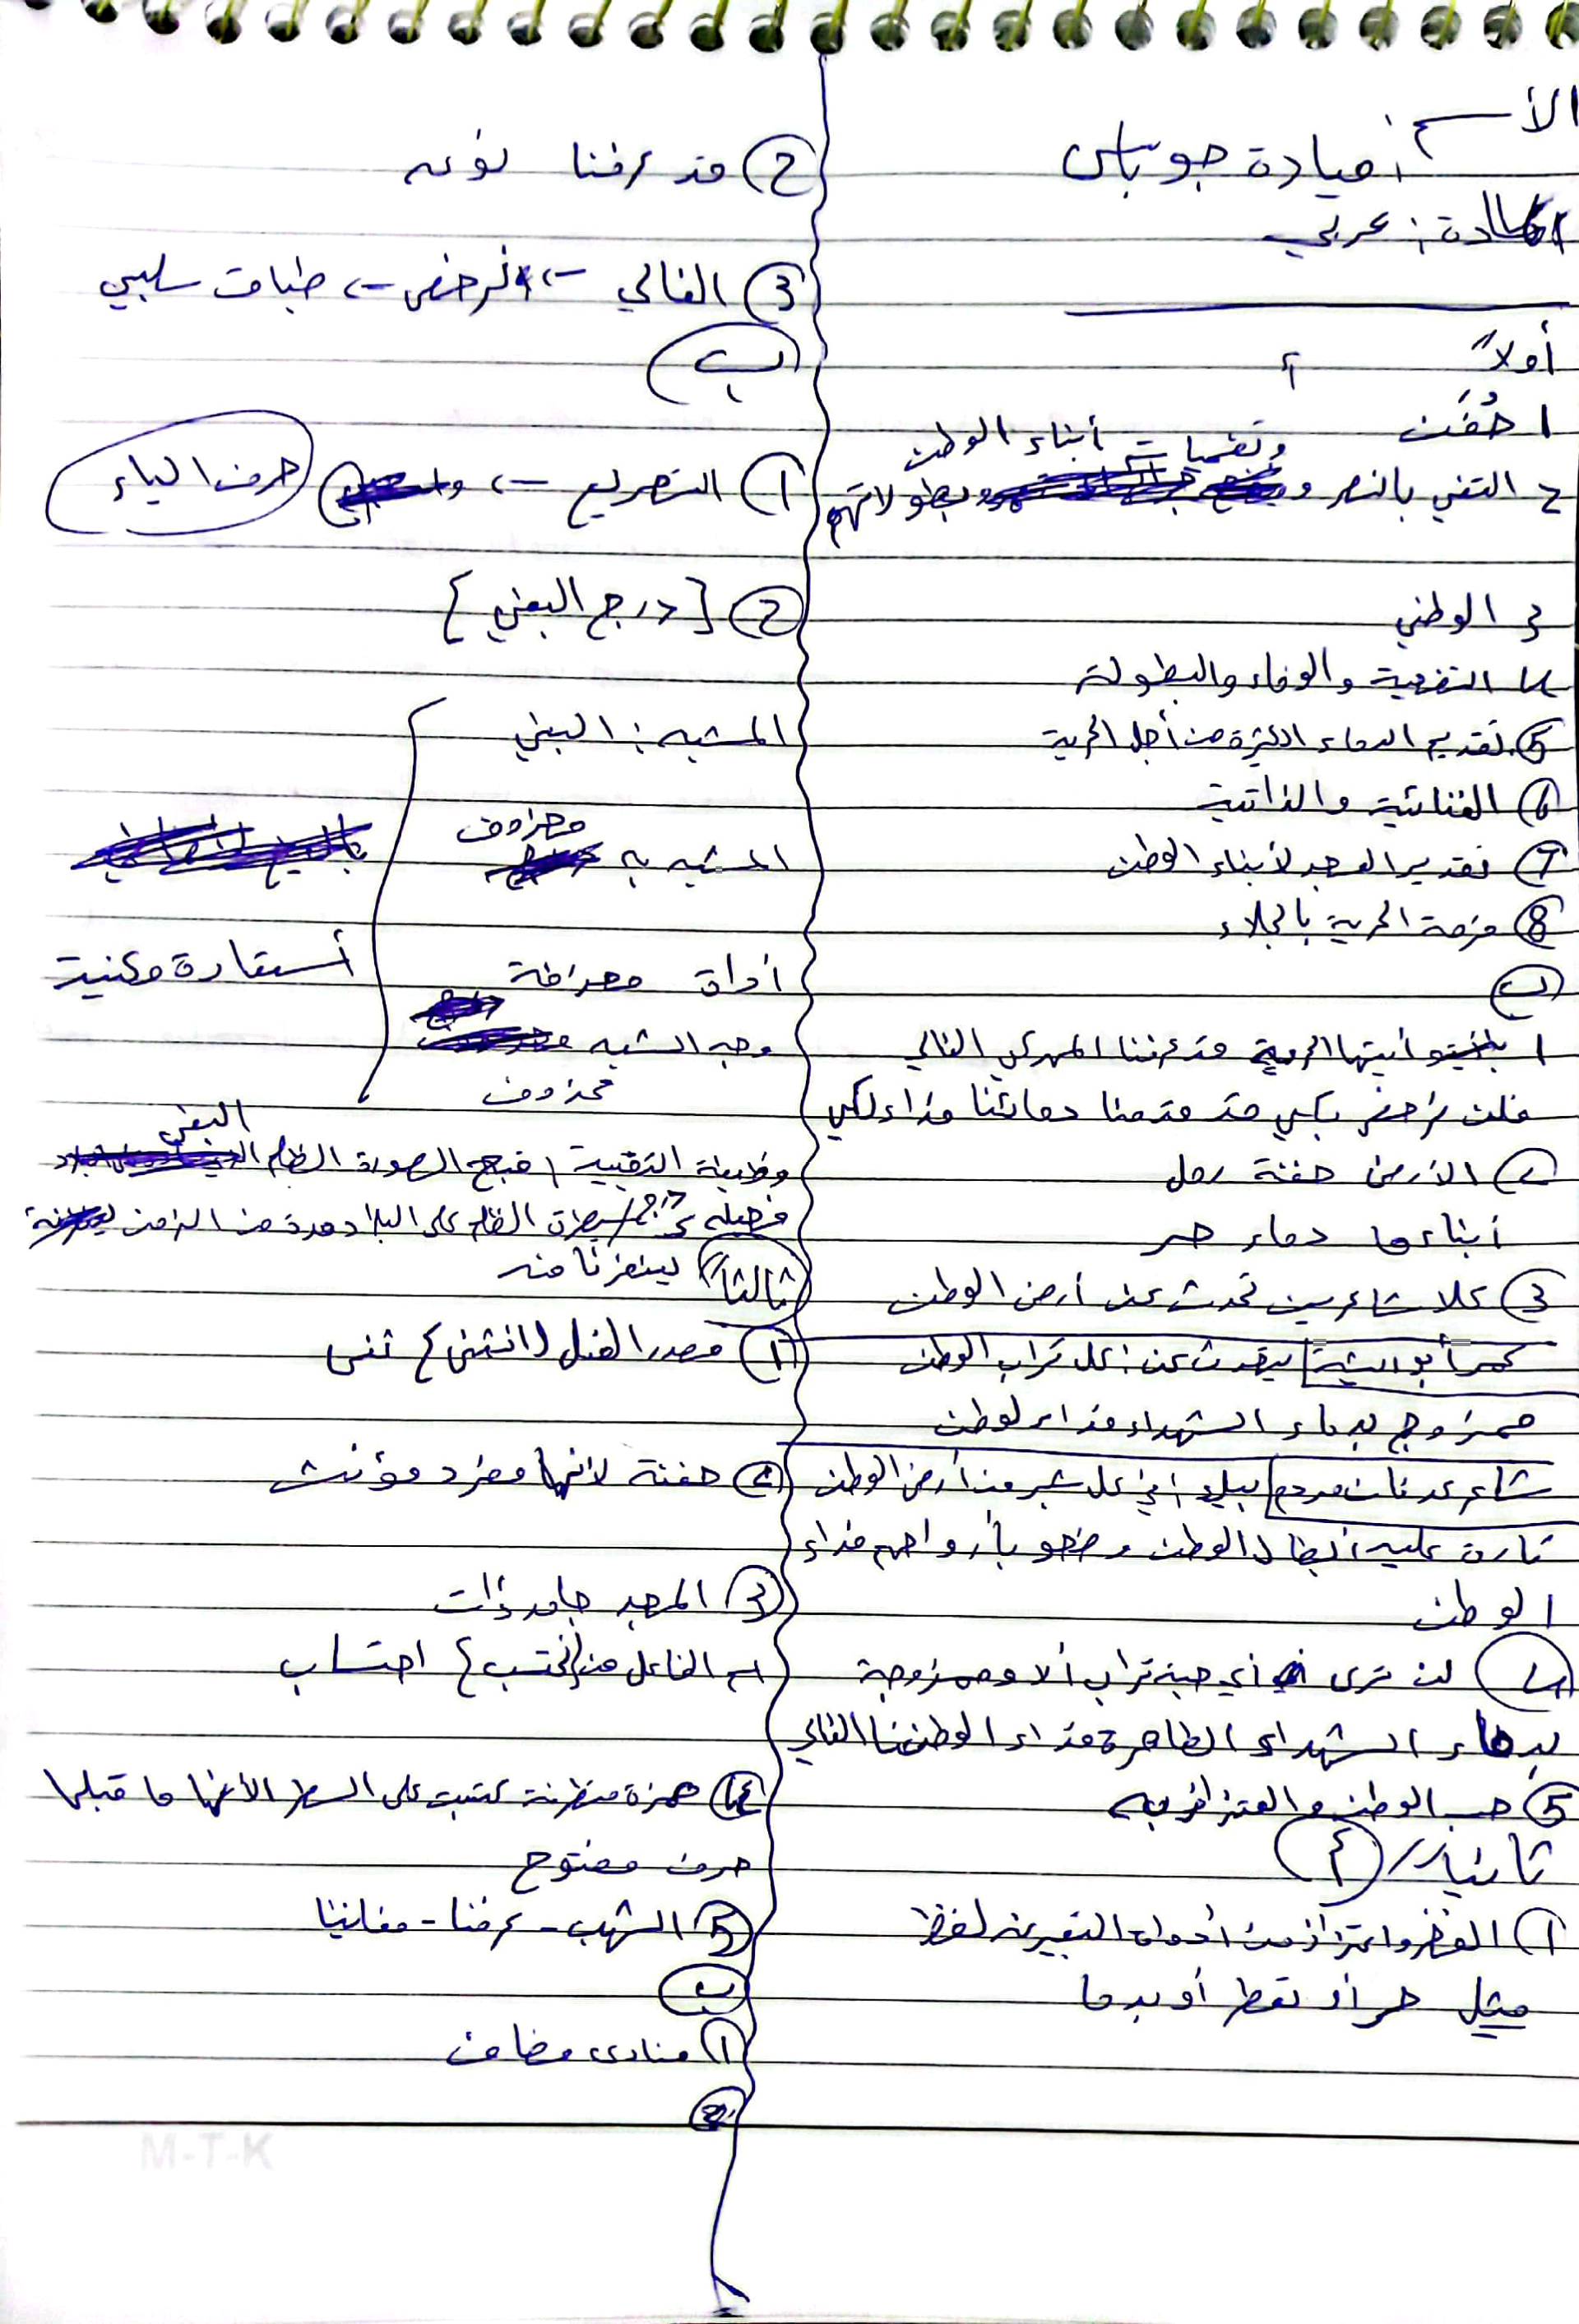 الأسم: ميادة جوباس
المادة: عربي
أولاً أ
1 حُفَن
2 التغني بالنصر و وتضحيات أبناء الوطن وبطولاتهم
3 الوطني
4 التضحية والوفاء والبطولة
5 تقديم الدماء الكثيرة من أجل الحرية
6 الغنائية والذاتية
7 تقدير المجد لأبناء الوطن
8 فرحة الحرية بالجلاء
ب
1 أيتها الحرية قد عرفنا المهر الغالي
فلن نرخص قد قدمنا دمائنا فداء لكي
2 الأرض حفنة رمل
أبناءها دماء حر
3 كلا شاعرين تحدث عن أرض الوطن
عمر أبو ريشة يتحدث عن: كل تراب الوطن
ممزوج بدماء الشهداء فداء لوطن
شاعر عدنان مردم بيك: في كل شبر من أرض الوطن
ثارت عليه أبطال الوطن وضحو بأرواحهم فداء
الوطن
4 لن ترى أي حبة تراب ألا وممزوجة
بدماء الشهداء الطاهرة فداء الوطننا الغالي
5 حب الوطن والعتزاز به
ثانياً // أ
1 الفخر واعتزاز من أدوات التعبير عنه لفظ
مثل حر أو تقطر أو بدما
2 قد عرفنا نوعه
3 الغالي -> نرخص -> طباق سلبي
ب
1 التصريع -> حرف الياء
2 [درج البغي]
المشبه: البغي
المشبه به محذوف
أداة محذافة
وجه الشبه محذوف
أستعارة مكنية
وظيفة التقنية: قبح الصورة الظلم البغي
سيطرة الظلم على البلاد مدة من الزمن
لينفرنا منه
ثالثاً //
1 مصدر الفعل (انتشى) نشى
2 حفنة لانها مفرد مؤنث
3 المجد جامد ذات
اسم الفاعل من (نحتسب) احتساب
4 همزة متطرفة كتبت على السطر الأنها ما قبلها
حرف مفتوح
5 الشهب - عرفنا - مغانينا
ب
1 منادى مضاف
2
M-T-K